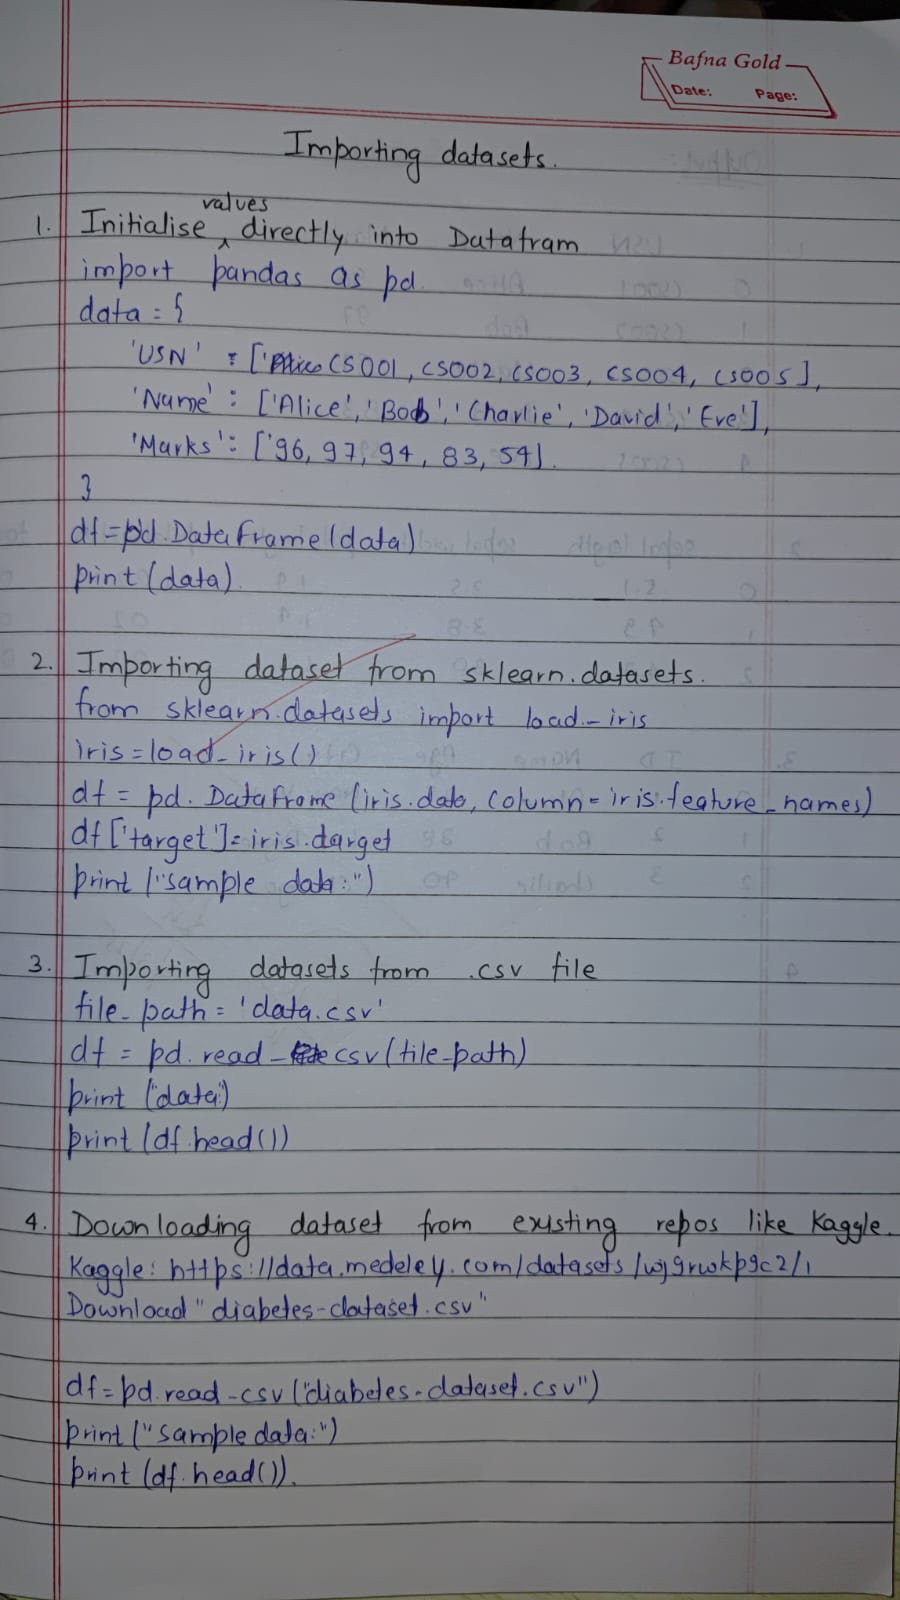 Bafna Gold
Date: Page:
Importing datasets.
values
1. Initialise ^ directly into Datafram
import pandas as pd.
data = {
'USN' : ['CS001, CS002, CS003, CS004, CS005],
'Name' : ['Alice', 'Bob', 'Charlie', 'David', 'Eve'],
'Marks' : ['96, 97, 94, 83, 54].
}
df=pd.DataFrame(data)
print(data).
2. Importing dataset from sklearn.datasets.
from sklearn.datasets import load_iris
iris=load_iris()
df = pd.DataFrame(iris.data, column=iris.feature_names)
df['target']=iris.darget
print("sample data:")
3. Importing datasets from .csv file
file_path = 'data.csv'
df = pd.read_csv(file_path)
print("data:)
print(df.head())
4. Downloading dataset from existing repos like Kaggle.
Kaggle: https://data.medeley.com/datasets/wj9rwkp9c2/1
Download "diabetes-dataset.csv"
df=pd.read_csv("diabetes-dataset.csv")
print("sample data:")
print(df.head()).